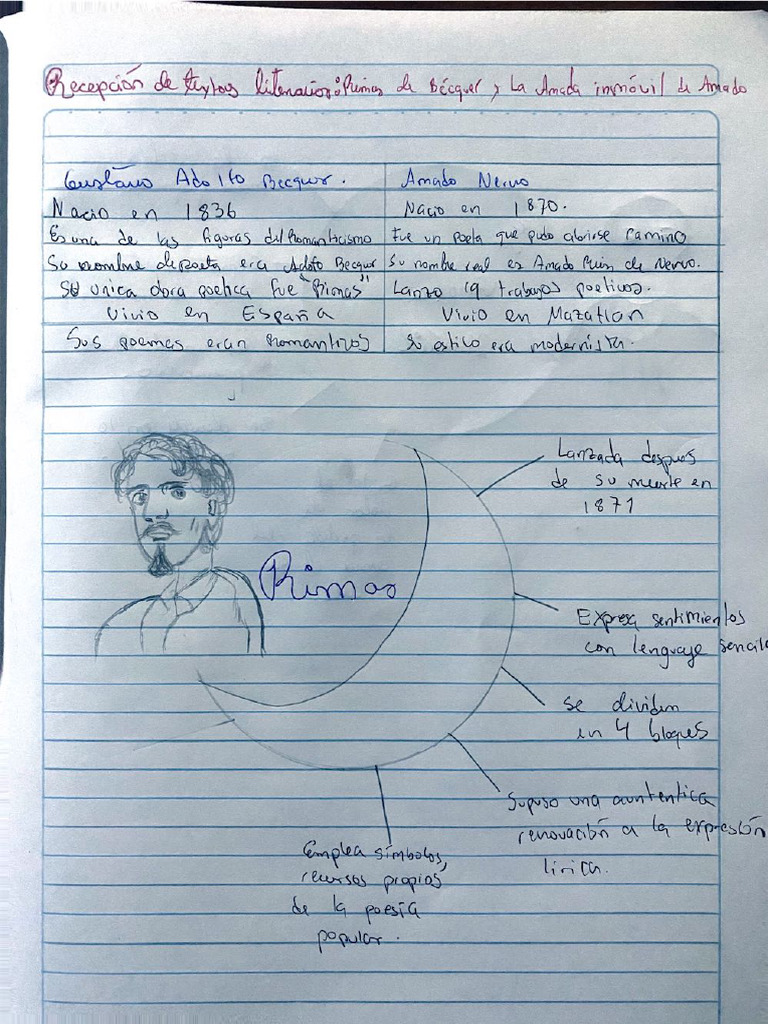 Recepción de textos literarios: Rimas de Bécquer y La Amada inmóvil de Amado
Gustavo Adolfo Becquer.
Amado Nervo
Nacio en 1836
Nacio en 1870.
Es una de las figuras del Romanticismo
Fue un poeta que pudo abrirse camino
Su nombre de poeta era Adolfo Becquer
Su nombre real es Amado Ruiz de Nervo.
Su unica obra poetica fue "Rimas"
Lanzo 19 trabajos poeticos.
Vivio en España
Vivio en Mazatlan
Sus poemas eran Romanticos
Su estilo era modernista.
Rimas
Lanzada despues
de su muerte en
1871
Expresa sentimientos
con lenguaje sencillo
se dividen
en 4 bloques
Supuso una auntentica
renovación a la expresión
lirica.
Emplea símbolos,
recursos propios
de la poesía
popular.